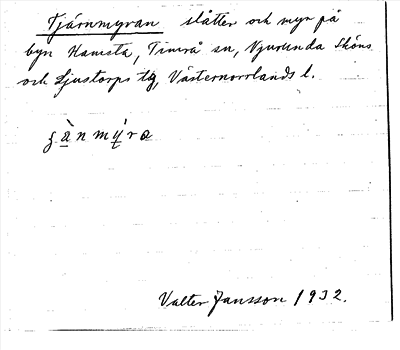 Tjärnmyran slåtter och myr på
byn Hamsta, Timrå sn, Njurunda Sköns
och Ljustorps tg, Västernorrlands l.
Valter Jansson 1932.